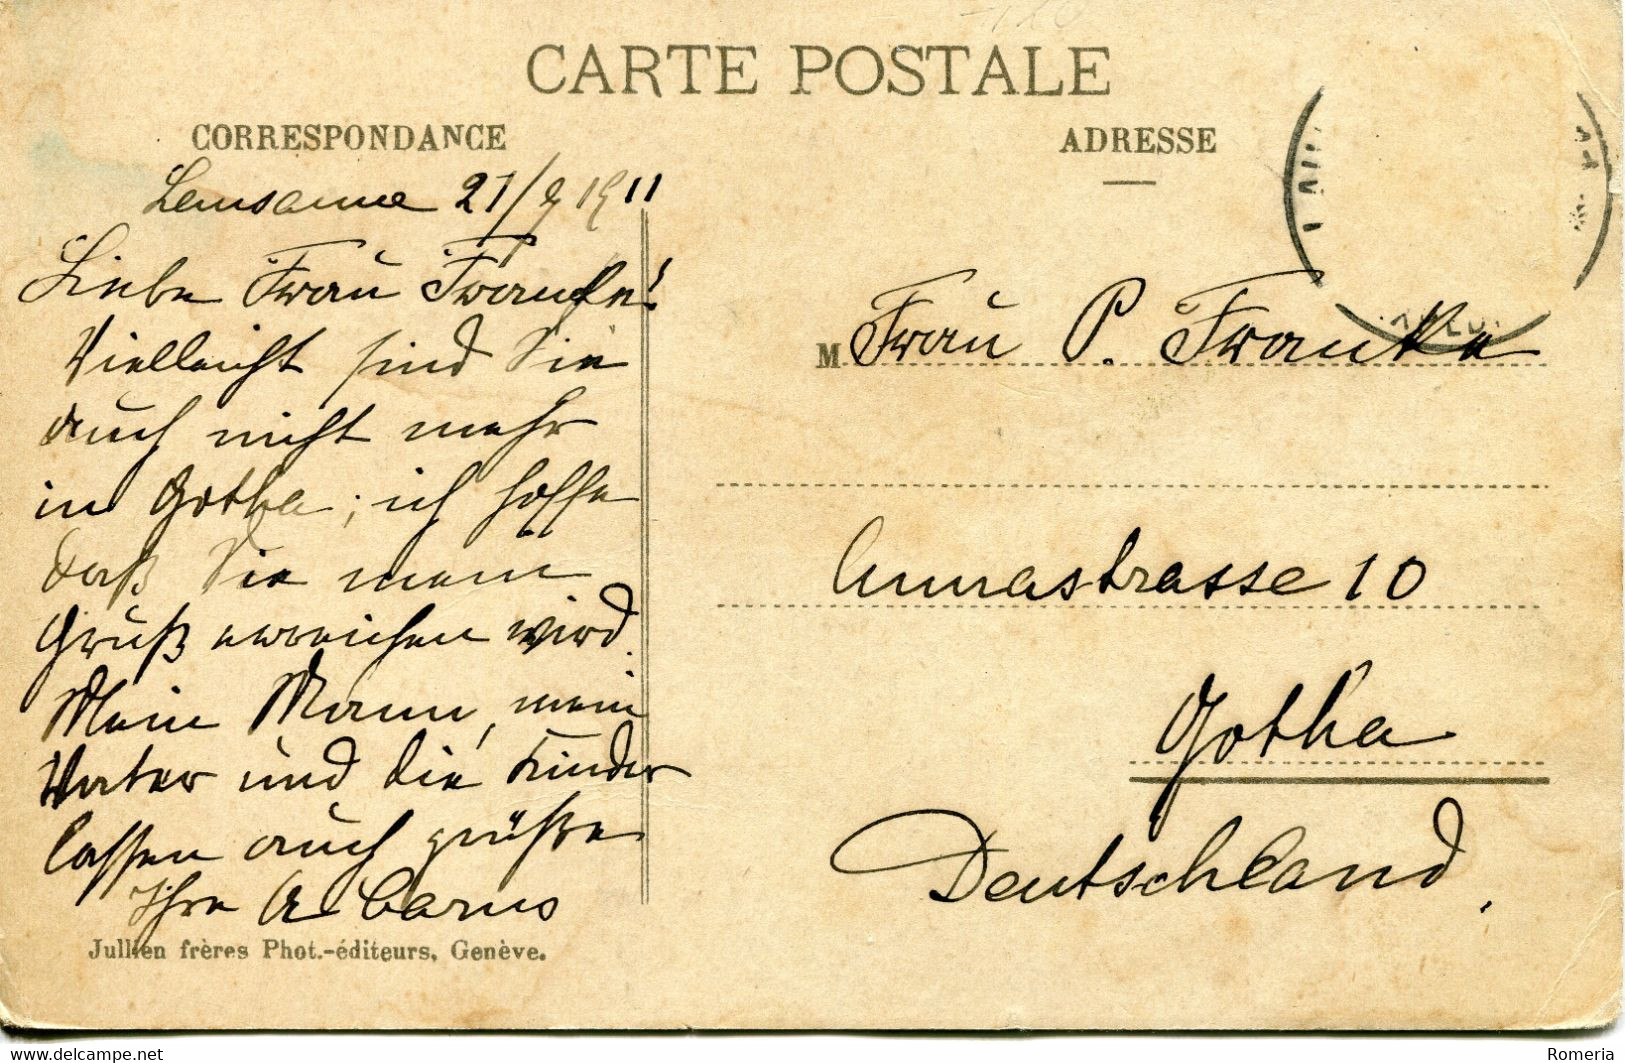 CARTE POSTALE
CORRESPONDANCE
ADRESSE
Lausanne 21/9 1911
Liebe Frau Francke!
Vielleicht sind Sie
auch nicht mehr
in Gotha; ich hoffe
daß Sie mein
Gruß erreichen wird.
Mein Mann, mein
Vater und die Kinder
lassen auch grüßen
Ihre A Carus
Jullien frères Phot.-éditeurs, Genève.
M Frau P. Francke
Annastrasse 10
Gotha
Deutschland.
www.delcampe.net
Romeria